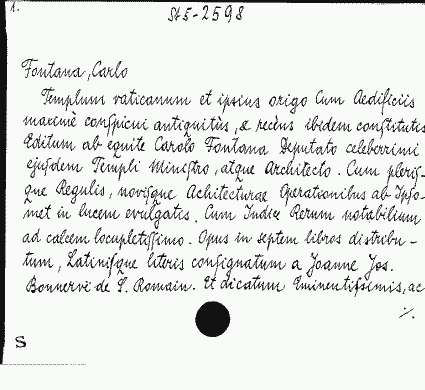 1.
St 5-2598
Fontana, Carlo
Templum vaticanum et ipsius origo Cum Aedificiis
maximè conſpicui antiquitùs, & recèns ibidem conſtitutis
Editum ab equite Carolo Fontana Deputato celeberrimi
ejuſdem Templi Miniſtro, atque Architecto. Cum pleriſ-
que Regulis, noviſque Achitecturae Operationibus ab Ipſo-
met in lucem evulgatis. Cum Indice Rerum notabilium
ad calcem locupletiſſimo. Opus in septem libros distribu-
tum, Latiniſque literis conſignatum a Joanne Jos.
Bonnervi de S. Romain. Et dicatum Eminentiſsimis, ac
./.
S